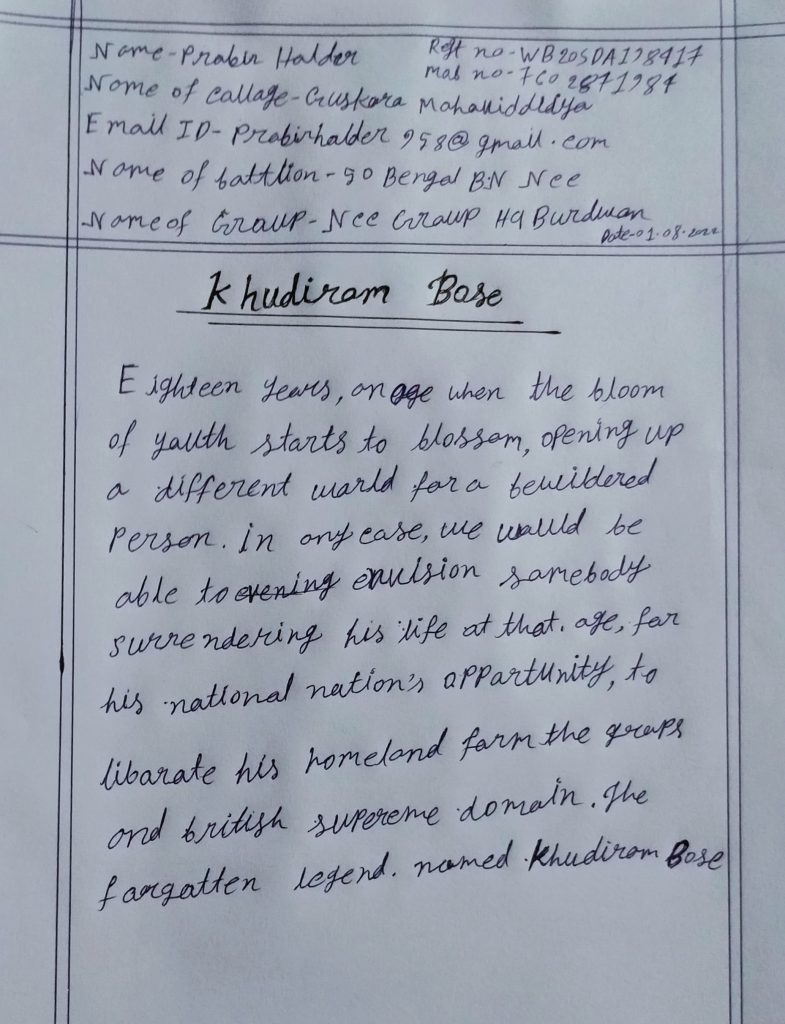 Name-Prabir Halder
Regt no-WB20SDA178417
Name of callage-Guskara Mahaviddldya
mob no-7602871984
Email ID-Prabirhalder958@gmail.com
Name of battlion-50 Bengal BN Ncc
Name of Group-Ncc Group HQ Burdwan
Date-01.08.2022
Khudiram Bose
Eighteen years, an age when the bloom
of youth starts to blossom, opening up
a different world for a bewildered
Person. in any case, we would be
able to envision somebody
surrendering his life at that. age, for
his national nation's oppartunity, to
libarate his homeland farm the graps
and british supereme domain. The
forgotten legend. named Khudiram Bose